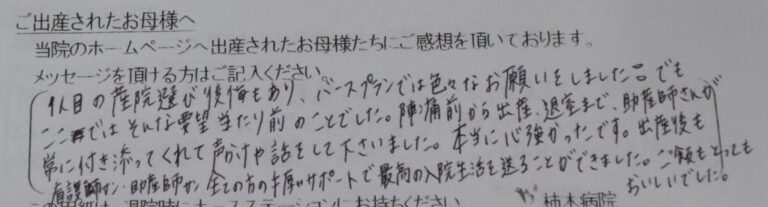 ご出産されたお母様へ
当院のホームページへ出産されたお母様たちにご感想を頂いております。
メッセージを頂ける方はご記入ください。
1人目の産院選び後悔もあり、バースプランでは色々なお願いをしました でも
ここではそんな要望当たり前のことでした。陣痛前から出産、退室まで、助産師さんが
常に付き添ってくれて声かけや話をして下さいました。本当に心強かったです。出産後も
看護師さん・助産師さん全ての方の手厚いサポートで最高の入院生活を送ることができました。ご飯もとっても
おいしいでした。
退院時にナースステーションにお持ちください
柿木病院